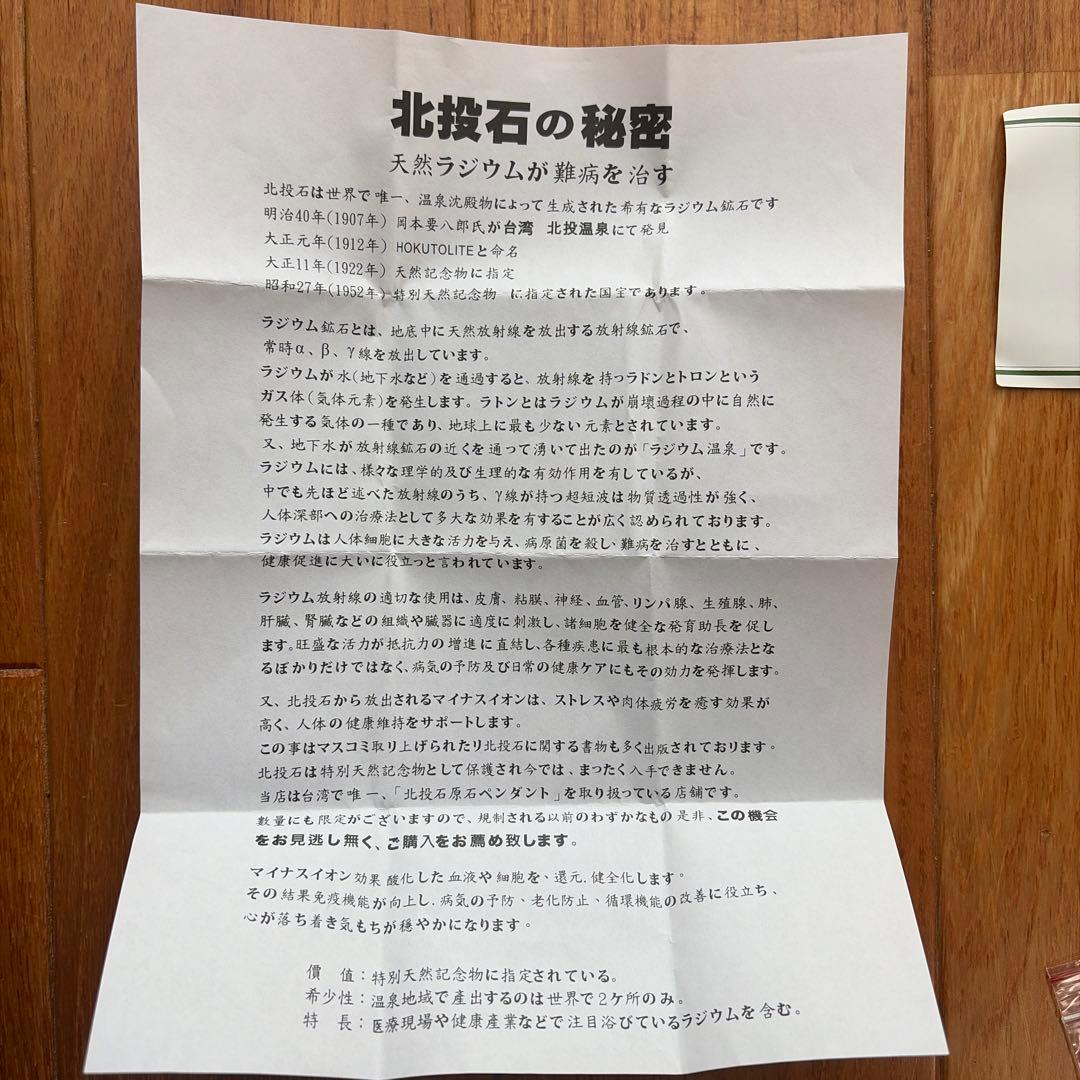 北投石の秘密
天然ラジウムが難病を治す
北投石は世界で唯一、温泉沈殿物によって生成された希有なラジウム鉱石です
明治40年(1907年) 岡本要八郎氏が台湾 北投温泉にて発見
大正元年(1912年) HOKUTOLITEと命名
大正11年(1922年) 天然記念物に指定
昭和27年(1952年) 特別天然記念物 に指定された国宝であります。
ラジウム鉱石とは、地底中に天然放射線を放出する放射線鉱石で、
常時α、β、γ線を放出しています。
ラジウムが水(地下水など)を通過すると、放射線を持つラドンとトロンという
ガス体(気体元素)を発生します。ラトンとはラジウムが崩壊過程の中に自然に
発生する気体の一種であり、地球上に最も少ない元素とされています。
又、地下水が放射線鉱石の近くを通って湧いて出たのが「ラジウム温泉」です。
ラジウムには、様々な理学的及び生理的な有効作用を有しているが、
中でも先ほど述べた放射線のうち、γ線が持つ超短波は物質透過性が強く、
人体深部への治療法として多大な効果を有することが広く認められております。
ラジウムは人体細胞に大きな活力を与え、病原菌を殺し、難病を治すとともに、
健康促進に大いに役立っと言われています。
ラジウム放射線の適切な使用は、皮膚、粘膜、神経、血管、リンパ腺、生殖腺、肺、
肝臓、腎臓などの組織や臓器に適度に刺激し、諸細胞を健全な発育助長を促し
ます。旺盛な活力が抵抗力の増進に直結し、各種疾患に最も根本的な治療法とな
るぼかりだけではなく、病気の予防及び日常の健康ケアにもその効力を発揮します。
又、北投石から放出されるマイナスイオンは、ストレスや肉体疲労を癒す効果が
高く、人体の健康維持をサポートします。
この事はマスコミ取り上げられたリ北投石に関する書物も多く出版されております。
北投石は特別天然記念物として保護され今では、まったく入手できません。
当店は台湾で唯一、「北投石原石ペンダント」を取り扱っている店舗です。
数量にも限定がございますので、規制される以前のわずかなもの是非、この機会
をお見逃し無く、ご購入をお薦め致します。
マイナスイオン効果 酸化した血液や細胞を、還元.健全化します。
その結果免疫機能が向上し.病気の予防、老化防止、循環機能の改善に役立ち、
心が落ち着き気もちが穏やかになります。
價 值：特別天然記念物に指定されている。
希少性：温泉地域で産出するのは世界で2ケ所のみ。
特 長：医療現場や健康産業などで注目浴びているラジウムを含む。